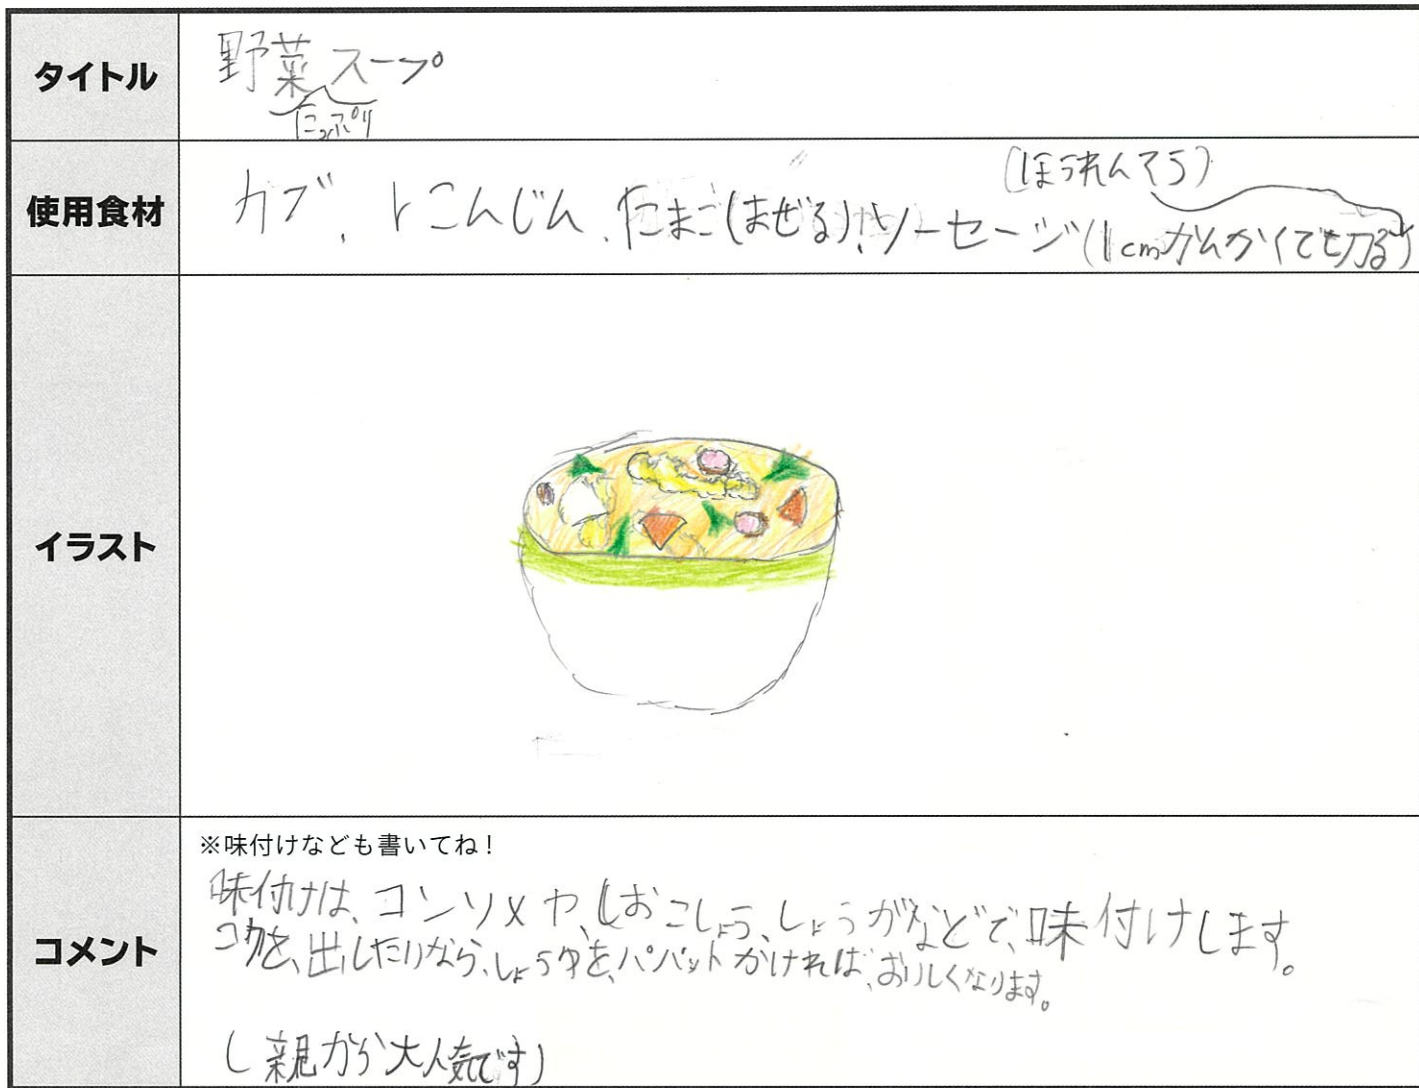 タイトル
野菜たっぷりスープ
使用食材
カブ、にんじん、たまご(まぜる)、ソーセージ(1cmかんかくで切る)
(ほうれんそう)
イラスト
コメント
※味付けなども書いてね！
味付けは、コンソメや、しおこしょう、しょうがなどで、味付けします。
コクを、出したいなら、しょうゆを、パパットかければ、おいしくなります。
(親から大人気です)